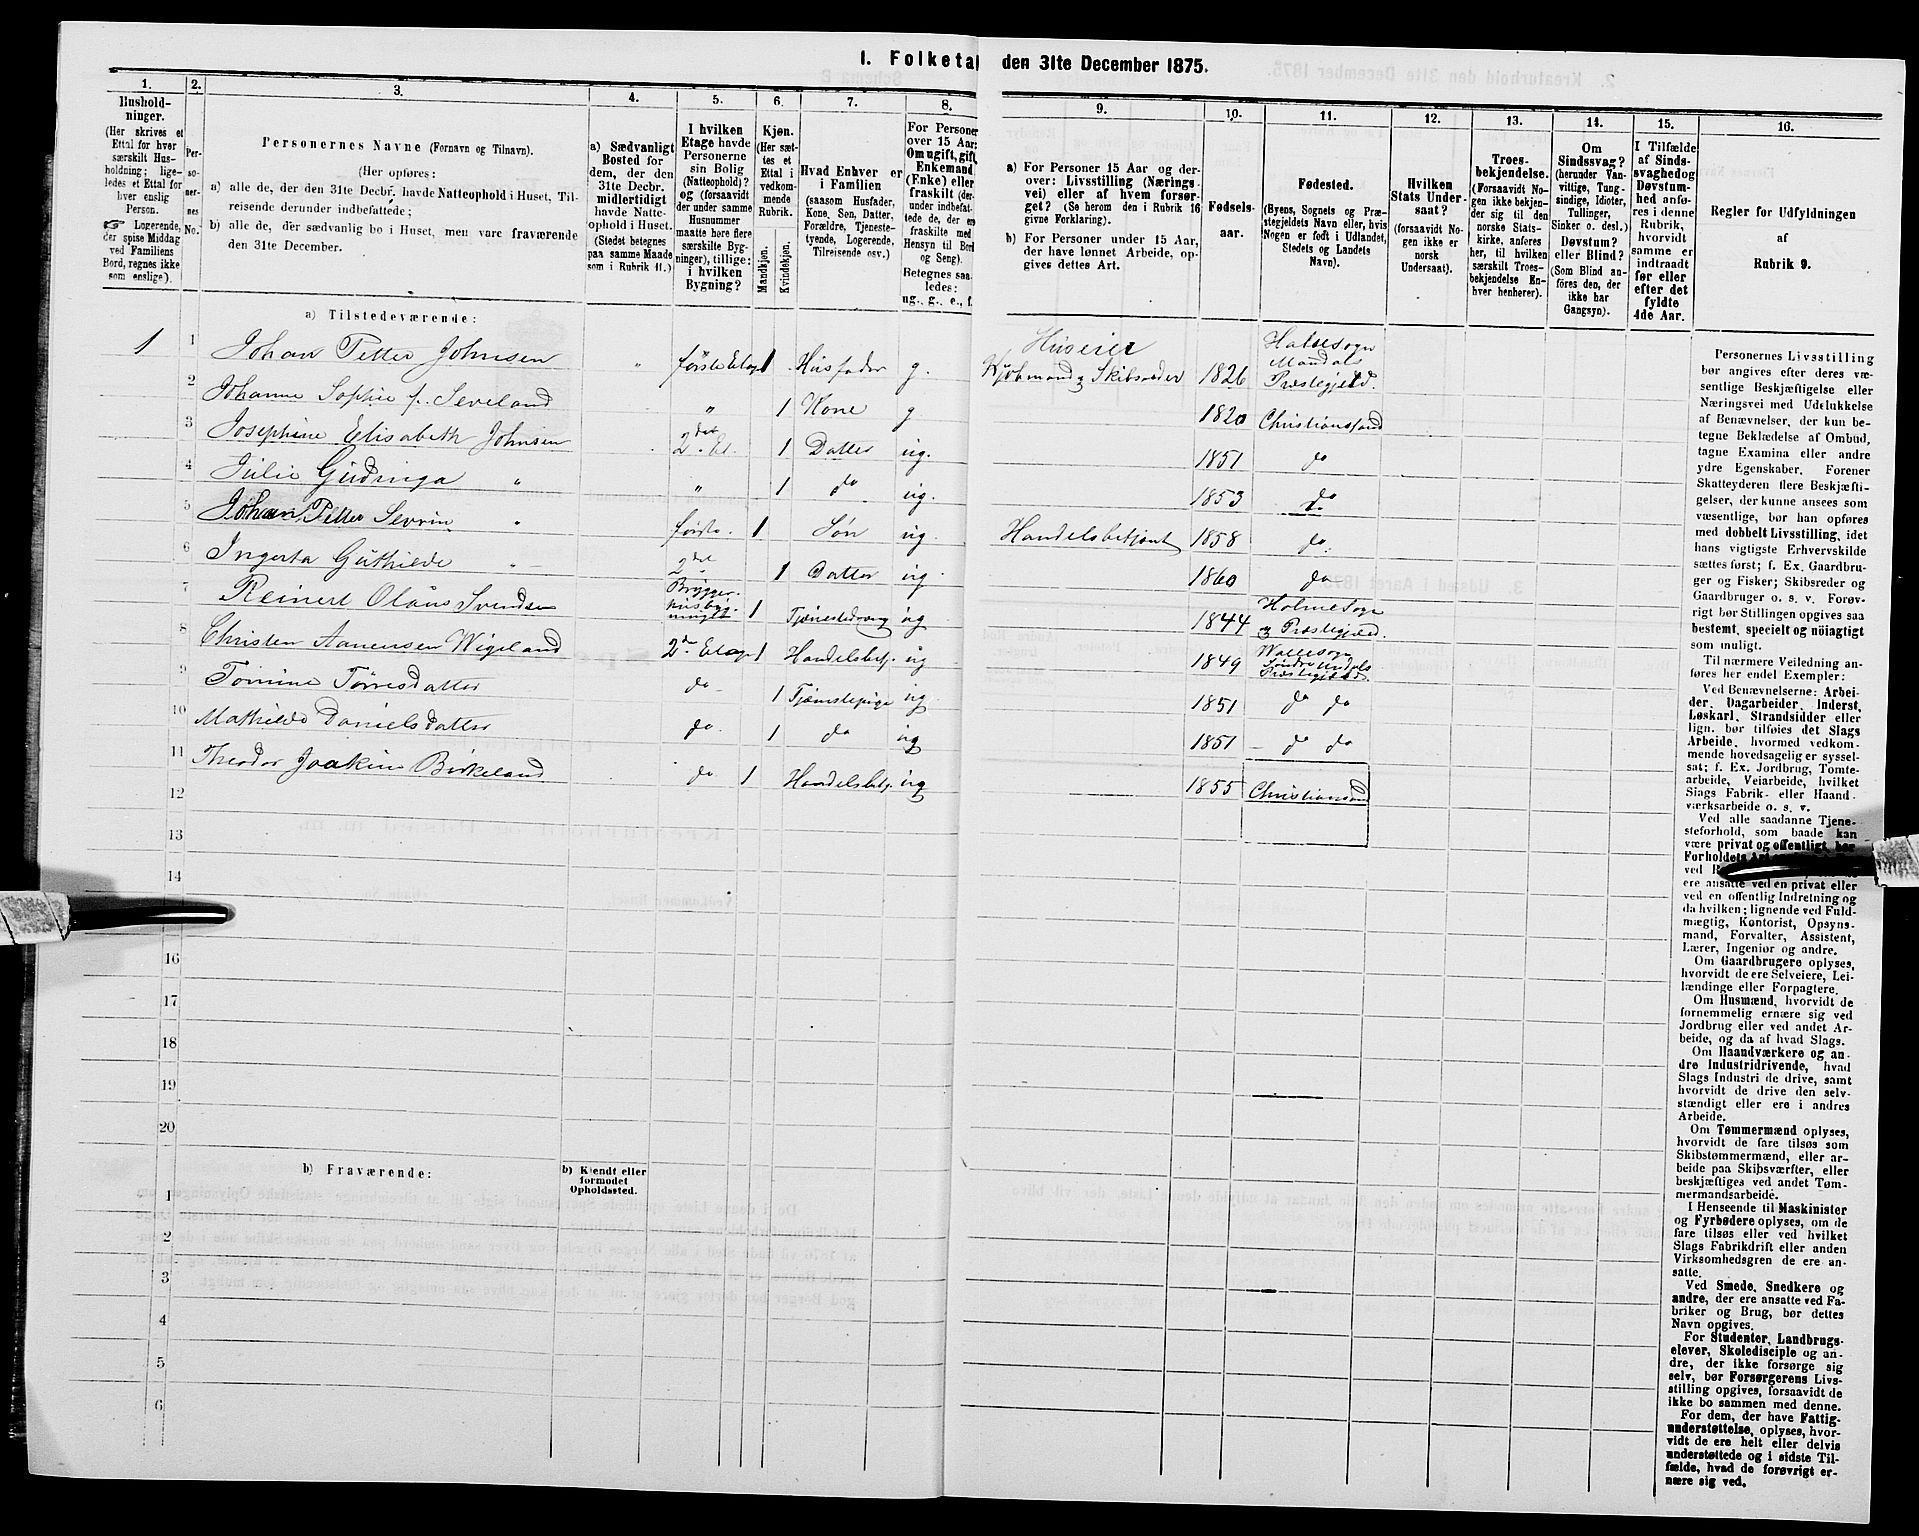 1. Folketal den 31te December 1875.
1. 2. 3. 4. 5. 6. 7. 8. 9. 10. 11. 12. 13. 14. 15. 16.
Hushold-
ninger.
(Her skrives et
Ettal for hver
særskilt Hus-
holdning; lige-
ledes et Ettal for
hver enslig
Person.
Logerende,
der spise Middag
ved Familiens
Bord, regnes ikke
som enslige).
Per-
so-
ner-
nes
No.
Personernes Navne (Fornavn og Tilnavn).
(Her opføres:
a) alle de, der den 31te Decbr. havde Natteophold i Huset, Til-
reisende derunder indbefattede;
b) alle de, der sædvanlig bo i Huset, men vare fraværende
den 31te December.
a) Sædvanligt
Bosted for
dem, der den
31te Decbr.
midlertidigt
havde Natte-
ophold i Huset.
(Stedet betegnes
paa samme Maade
som i Rubrik 11.)
I hvilken
Etage havde
Personerne
sin Bolig
(Natteophold)?
og (forsaavidt
der under samme
Husnummer
maatte høre flere
særskilte Byg-
ninger), tillige:
i hvilken
Bygning?
Kjøn.
(Her sæt-
tes et
Ettal i
vedkom-
mende
Rubrik.
Mandkjøn.
Kvindekjøn.
Hvad Enhver er
i Familien
(saasom Husfader,
Kone, Søn, Datter,
Forældre, Tjeneste-
tyende, Logerende,
Tilreisende osv.)
For Personer
over 15 Aar:
Om ugift, gift,
Enkemand
(Enke) eller
fraskilt (der-
under indbefat-
tede de, der ere
fraskilte med
Hensyn til Bord
og Seng).
Betegnes saa-
ledes:
ug., g., e., f.
a) For Personer 15 Aar og der-
over: Livsstilling (Nærings-
vei) eller af hvem forsør-
get? (Se herom den i Rubrik 16
givne Forklaring).
b) For Personer under 15 Aar,
der have lønnet Arbeide, op-
gives dettes Art.
Fødsels-
aar.
Fødested.
(Byens, Sognets og Præ-
stegjeldets Navn eller, hvis
Nogen er født i Udlandet,
Stedets og Landets
Navn).
Hvilken
Stats Under-
saat?
(forsaavidt No-
gen ikke er
norsk
Undersaat).
Troes-
bekjendelse.
(Forsaavidt No-
gen ikke bekjen-
der sig til den
norske Stats-
kirke, anføres
her, til hvilken
særskilt Troes-
bekjendelse En-
hver henhører).
Om
Sindssvag?
(herunder Van-
vittige, Tung-
sindige, Idioter,
Tullinger,
Sinker o. desl.)
Døvstum?
eller Blind?
(Som Blind an-
føres den, der
ikke har
Gangsyn).
I Tilfælde
af Sinds-
svaghed og
Døvstum-
hed anfø-
res i denne
Rubrik,
hvorvidt
samme er
indtraadt
før eller
efter det
fyldte
4de Aar.
Regler for Udfyldningen
af
Rubrik 9.
a) Tilstedeværende:
1 1 Johan Petter Johnsen " første Etage 1 Husfader g. Huseier Kjøbmand og Skibsreder 1826 Halsesogn Mandals Præstegjeld.
2 Johanne Sophie f. Seveland " 1 Kone g 1820 Christianssand
3 Josephine Elisabeth Johnsen 2det Et. 1 Datter ug. 1851 do
4 Julie Gudringa " " 1 do ug. 1853 do
5 Johan Petter Sevrin " første. 1 Søn ug. Handelsbetjent 1858 do.
6 Ingerta Guthilde " 2det 1 Datter ug. 1860 do
7 Reinert Olaus Svendsen Bryggerhusbygningen 1 Tjenestedreng ug 1844 Holme Sogn og Præstegjeld.
8 Christen Aanensen Wigeland 2den Etage 1 Handelsbetj. ug 1849 Valle Sogn Søndre Undals Præstegjeld.
9 Tomine Torresdatter do 1 Tjenestepige ug 1851 do do
10 Mathilde Danielsdatter do. 1 do ug 1851 do do
11 Theodor Joakim Birkeland do 1 Handelsbetj. ug 1855 Christianssand
12
13
14
16
17
18
19
20
b) Fraværende:
b) Kjendt eller
formodet
Opholdssted.
1
2
3
4
5
6
Personernes Livsstilling
bør angives efter deres væ-
sentlige Beskjæftigelse eller
Næringsvei med Udelukkelse
af Benævnelser, der kun be-
tegne Beklædelse af Ombud,
tagne Examina eller andre
ydre Egenskaber. Forener
Skatteyderen flere Beskjæfti-
gelser, der kunne ansees som
væsentlige, bør han opføres
med dobbelt Livsstilling, idet
hans vigtigste Erhvervskilde
sættes først; f. Ex. Gaardbru-
ger og Fisker; Skibsreder og
Gaardbruger o. s. v. Forøv-
rigt bør Stillingen opgives saa
bestemt, specielt og nøiagtigt
som muligt.
Til nærmere Veiledning an-
føres her endel Exempler:
Ved Benævnelserne: Arbei-
der, Dagarbeider, Inderst,
Løskarl, Strandsidder eller
lign. bør tilføies det Slags
Arbeide, hvormed vedkom-
mende hovedsagelig er syssel-
sat; f. Ex. Jordbrug, Tomte-
arbeide, Veiarbeide, hvilket
Slags Fabrik- eller Haand-
værksarbeide o. s. v.
Ved alle saadanne Tjene-
steforhold, som baade kan
være privat og offentligt, bør
Forholdets Art
ved
ere ansatte ved en privat eller
ved en offentlig Indretning og
da hvilken; lignende ved Fuld-
mægtig, Kontorist, Opsyns-
mand, Forvalter, Assistent,
Lærer, Ingeniør og andre.
Om Gaardbrugere oplyses,
hvorvidt de ere Selveiere, Lei-
lændinge eller Forpagtere.
Om Husmænd, hvorvidt de
fornemmelig ernære sig ved
Jordbrug eller ved andet Ar-
beide, og da af hvad Slags.
Om Haandværkere og an-
dre Industridrivende, hvad
Slags Industri de drive, samt
hvorvidt de drive den selv-
stændigt eller ere i andres
Arbeide.
Om Tømmermænd oplyses,
hvorvidt de fare tilsøs som
Skibstømmermænd, eller ar-
beide paa Skibsværfter, eller
beskjæftiges ved andet Tøm-
mermandsarbeide.
I Henseende til Maskinister
og Fyrbødere oplyses, om de
fare tilsøs eller ved hvilket
Slags Fabrikdrift eller anden
Virksomhedsgren de ere an-
satte.
Ved Smede, Snedkere og
andre, der ere ansatte ved Fa-
briker og Brug, bør dettes
Navn opgives.
For Studenter, Landbrugs-
elever, Skoledisciple og an-
dre, der ikke forsørge sig
selv, bør Forsørgerens Livs-
stilling opgives, forsaavidt de
ikke bo sammen med denne.
For dem, der have Fattig-
understøttelse, oplyses, hvor-
vidt de ere helt eller delvis
understøttede og i sidste Til-
fælde, hvad de forøvrigt er-
nære sig ved.